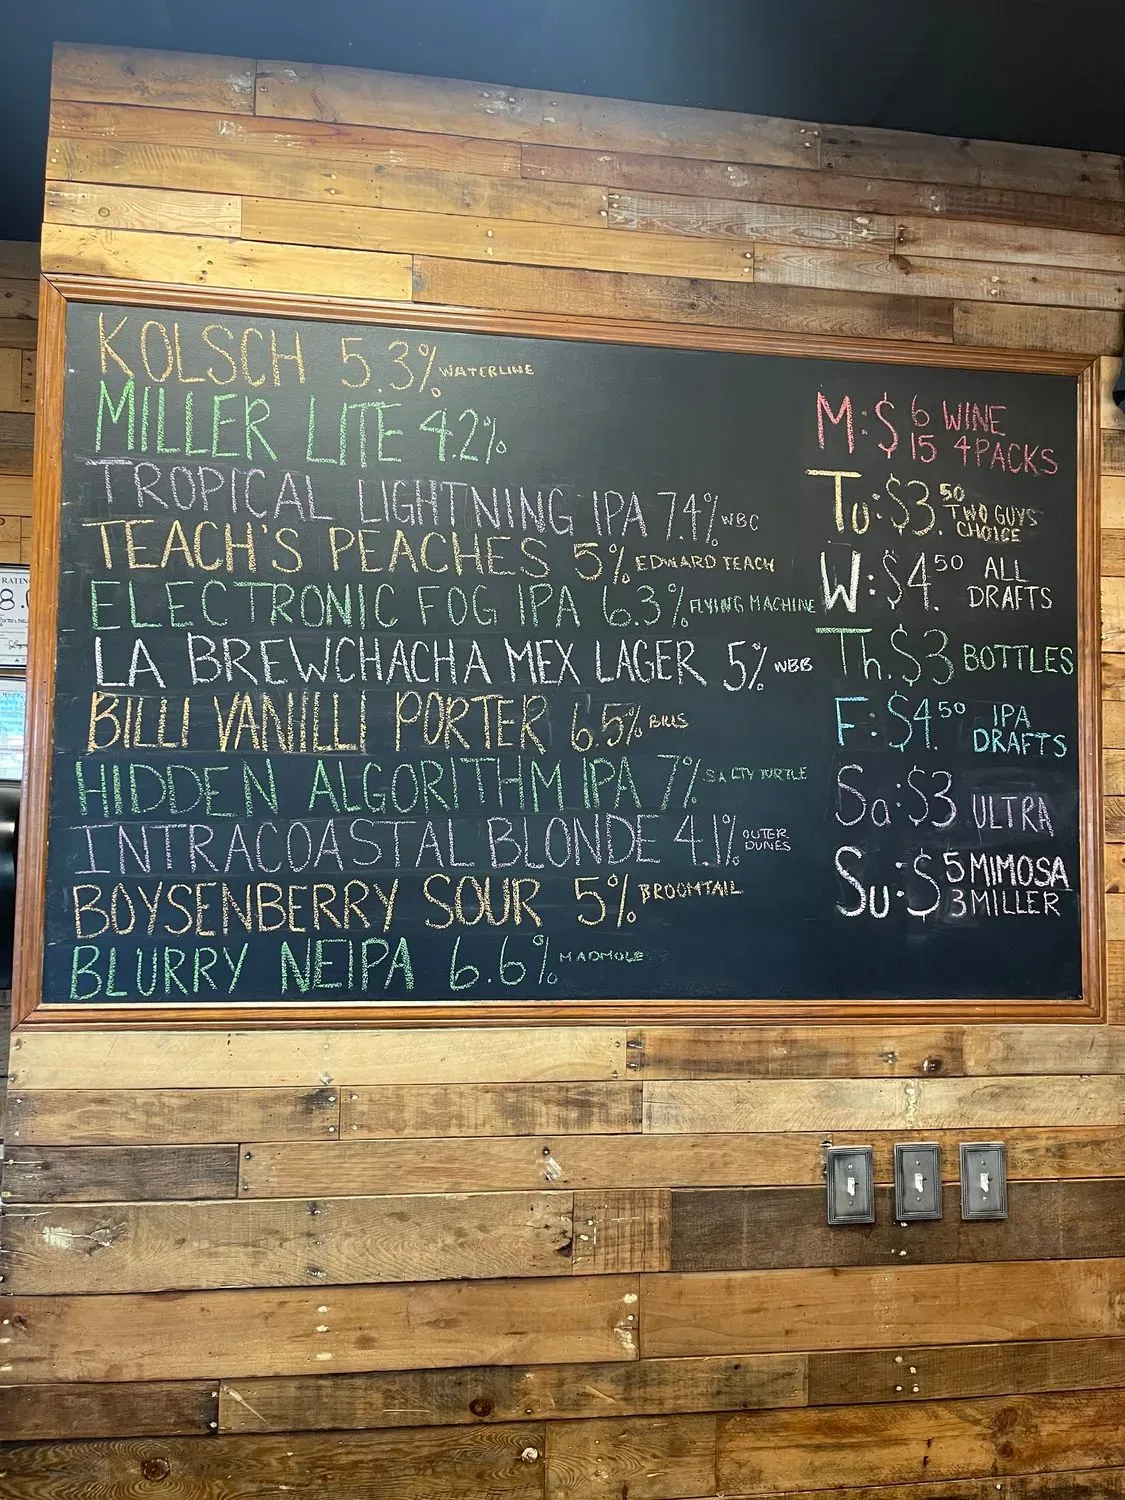 KOLSCH 5.3% WATERLINE
MILLER LITE 4.2%
TROPICAL LIGHTNING IPA 7.4% WBC
TEACH'S PEACHES 5% EDWARD TEACH
ELECTRONIC FOG IPA 6.3% FLYING MACHINE
LA BREWCHACHA MEX LAGER 5% WBB
BILLI VANILLI PORTER 6.5% BILLS
HIDDEN ALGORITHM IPA 7% SALTY TURTLE
INTRACOASTAL BLONDE 4.1% OUTER DUNES
BOYSENBERRY SOUR 5% BROOMTAIL
BLURRY NEIPA 6.6% MADMOLE
M: $ 6 WINE
15 4PACKS
Tu: $3.50 TWO GUYS
CHOICE
W: $4.50 ALL
DRAFTS
Th. $3 BOTTLES
F: $4.50 IPA
DRAFTS
Sa: $3 ULTRA
Su: $ 5 MIMOSA
3 MILLER
RATING